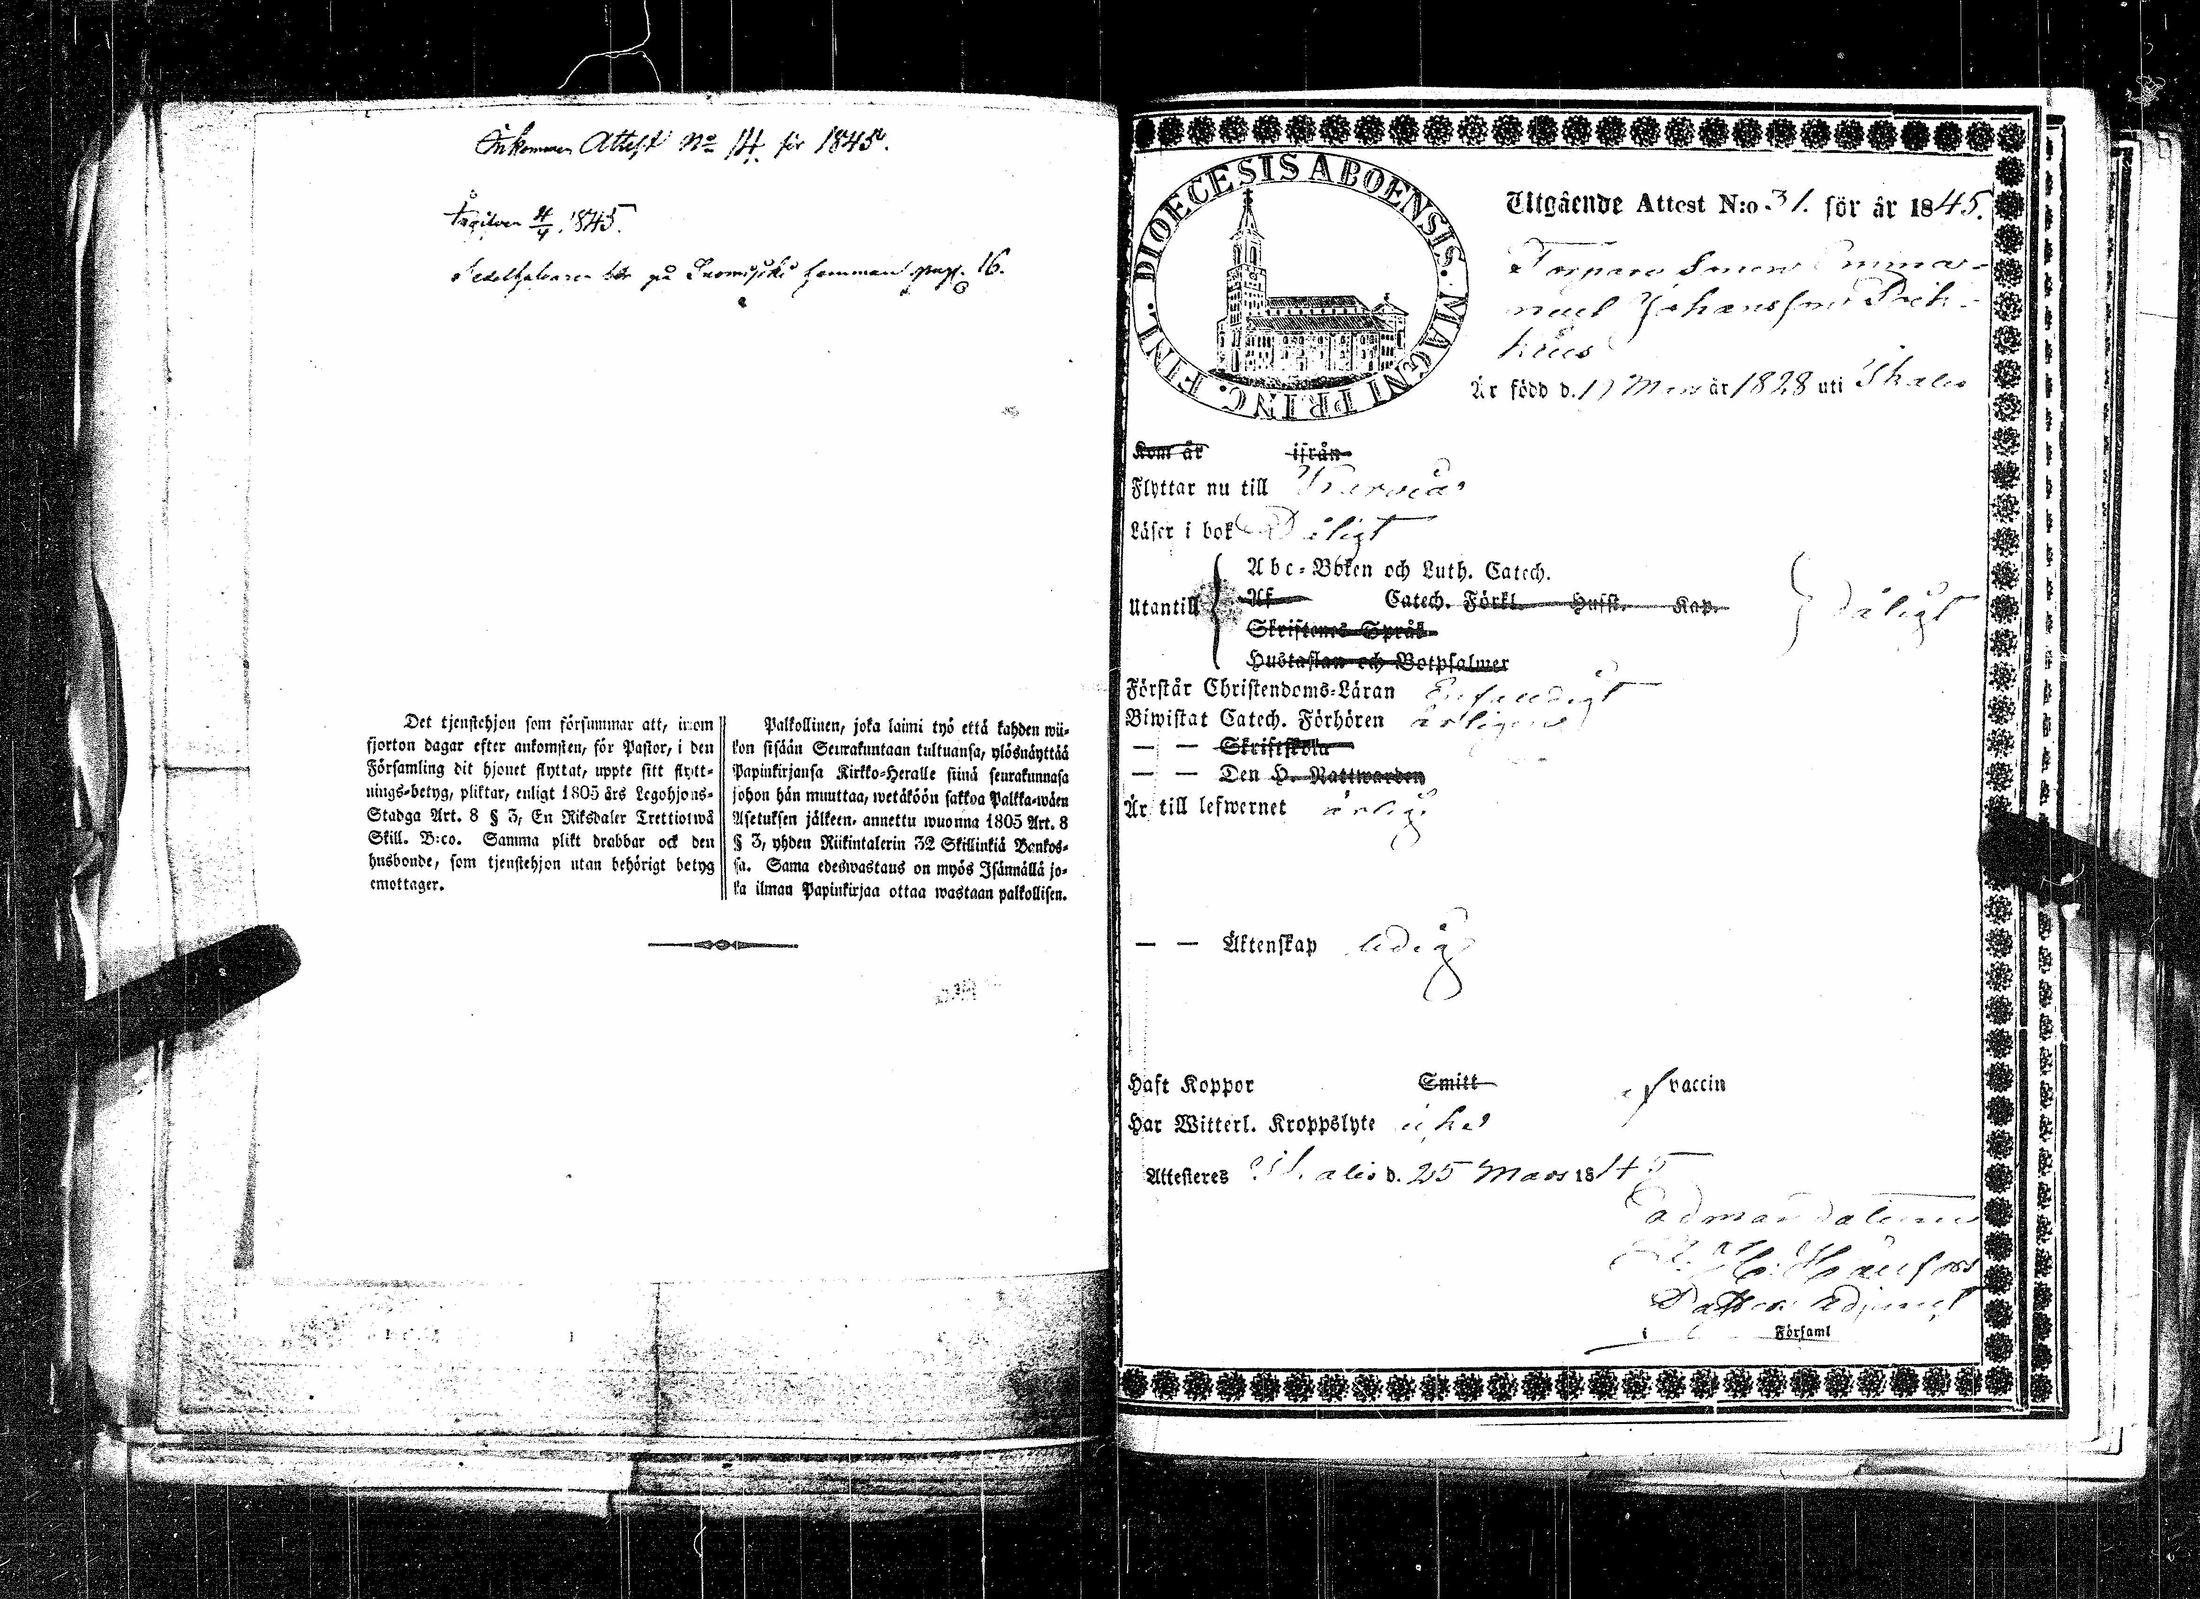 Inkommen Attest No 14. för 1845.
4/4 1845.
bör på hemman pag. 16.
Det tjenstehjon som försummar att, inom
fjorton dagar efter ankomsten, för Pastor, i den
Församling dit hjonet flyttat, uppte sitt flytt-
nings-betyg, pliktar, enligt 1805 års Legohjons-
Stadga Art. 8 § 3, En Riksdaler Trettiotwå
Skill. B:co. Samma plikt drabbar ock den
husbonde, som tjenstehjon utan behörigt betyg
emottager.
Palkollinen, joka laimi lyö että kahden wii-
kon sisään Seurakuntaan tultuansa, ylösnäyttää
Papinkirjansa Kirkko-Heralle siinä seurakunnasa
johon hän muuttaa, wetäköön sakkoa Palkka-wäen
Asetuksen jälkeen, annettu wuonna 1805 Art. 8
§ 3, yhden Riikintalerin 32 Skillinkiä Bankos-
sa. Sama edeswastaus on myös Isännällä jo-
ka ilman Papinkirjaa ottaa wastaan palkollisen.
DIOECESIS ABOENSIS. MAGNI PRINC. FINL.
Utgående Attest N:o 31. för år 1845.
Torpare Sonen Emma-
nuel Johansson
Är född d. 17 Mars år 1828 uti Ikalis
Kom år ifrån
Flyttar nu till Karvia
Läser i bok Dåligt
Utantill
Abc-Boken och Luth. Catech.
Af Catech. Förkl. Husst. Kap. dåligt
Skriftenes Språk
Hustaflan och Botpsalmer
Förstår Christendoms-Läran Enfaldigt
Biwistat Catech. Förhören årligen
— — Skriftskola
— — Den H. Nattwarden
Är till lefwernet ärlig
— — Äktenskap ledig
Haft Koppor Smitt af vaccin
Har Witterl. Kroppslyte icke
Attesteres Ikalis d. 25 Mars 1845
ad mandatum
Pastors Adjunct
i Församl